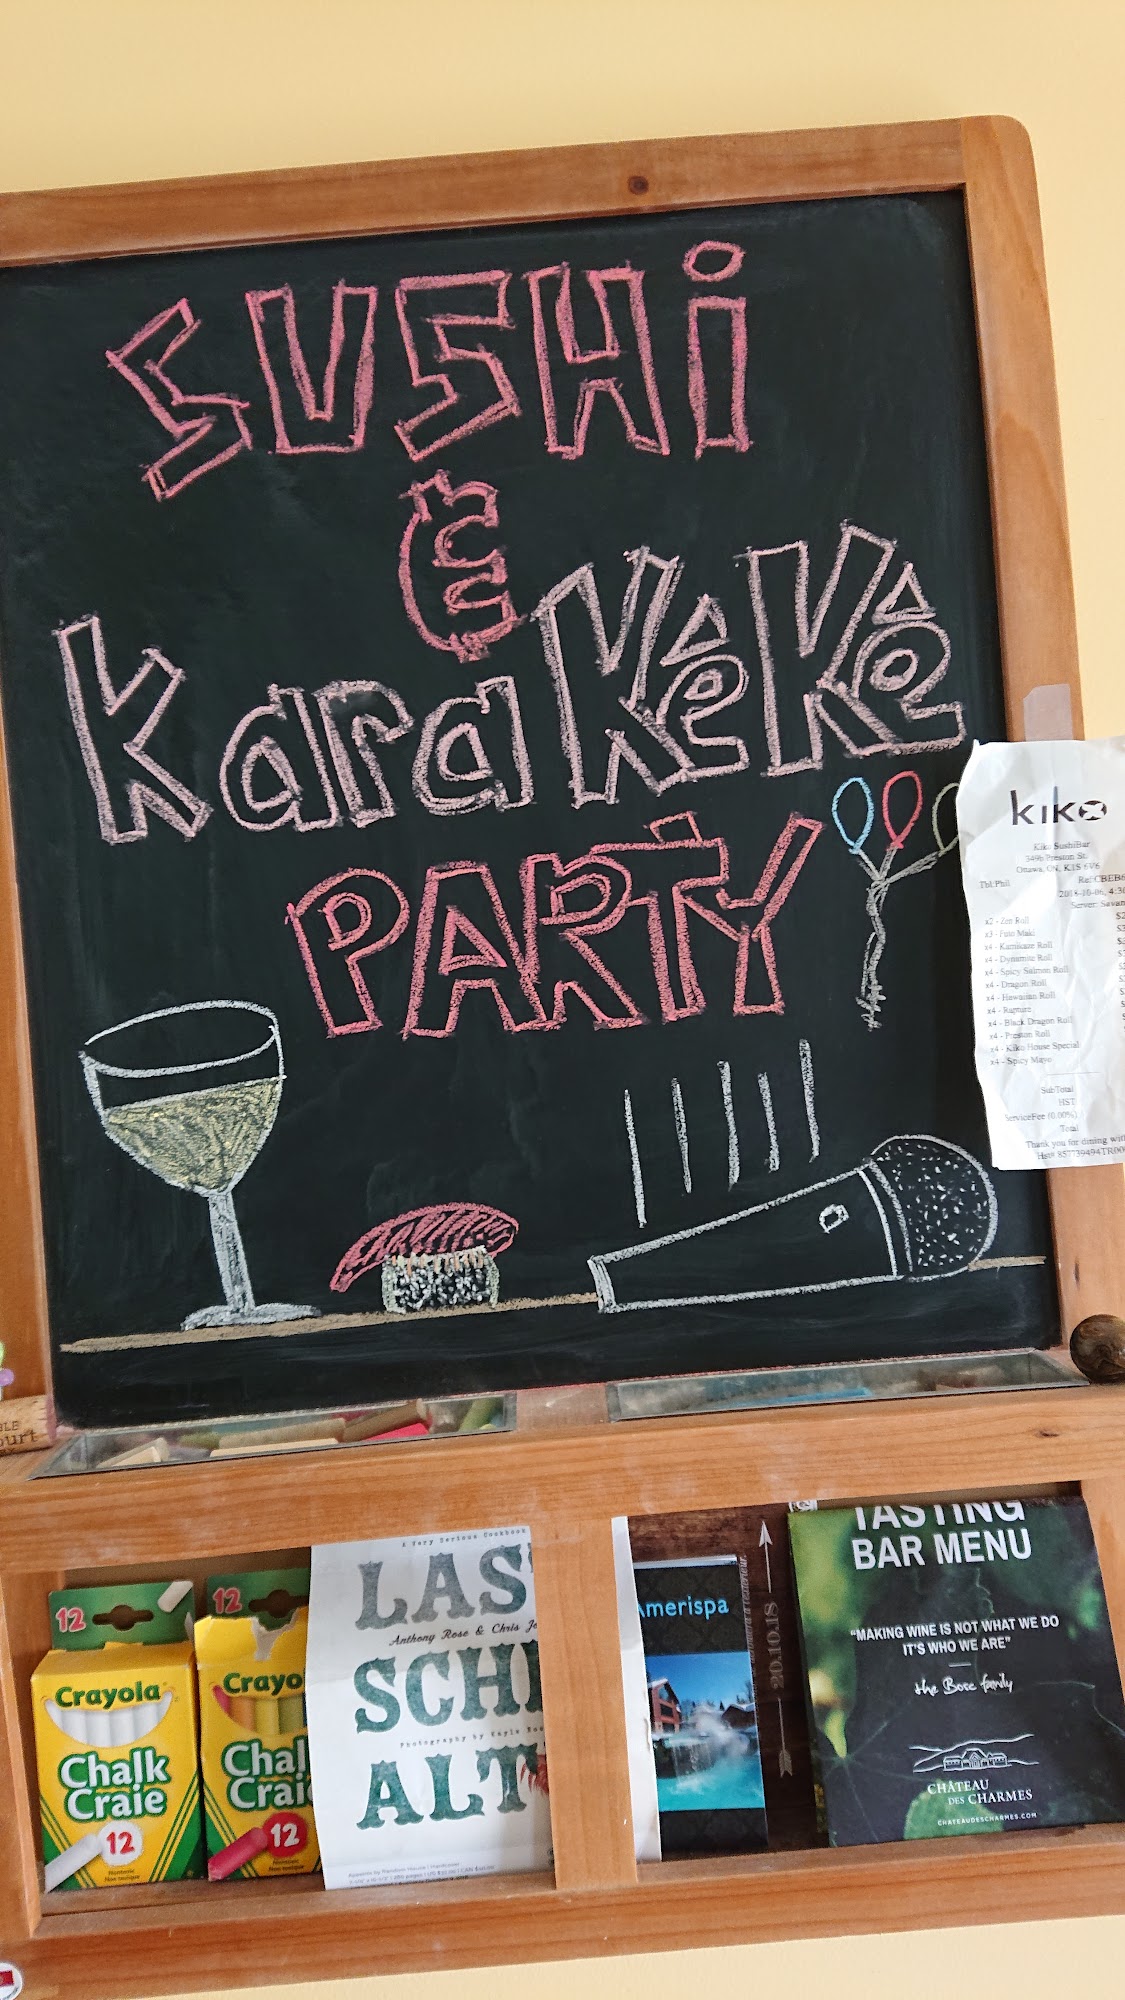 SUSHi
&
KaraKêKê
PARTY
kiko
Kiko SushiBar
349b Preston St.
Ottawa, ON, K1S 6V6
Tbl:Phil
2018-10-06, 4:3
Server: Savan
x2 - Zen Roll
x3 - Futo Maki
x4 - Kamikaze Roll
x4 - Dynamite Roll
x4 - Spicy Salmon Roll
x4 - Dragon Roll
x4 - Hawaiian Roll
x4 - Black Dragon Roll
x4 - Preston Roll
x4 - Kiko House Special
x4 - Spicy Mayo
SubTotal
HST
ServiceFee (0.00%)
Total
Thank you for dining with
Hst# 857739494TR00
12
Crayola
Chalk
Craie
12
Nontoxic
Non toxique
12
Crayo
Chal
Crai
12
Nontoxic
Non toxique
A Very Serious Cookbook
LAS
Anthony Rose & Chris Jo
SCH
Photography by Kayla
ALT
Amerispa
20.10.18
TASTING
BAR MENU
"MAKING WINE IS NOT WHAT WE DO
IT'S WHO WE ARE"
the Bosc family
CHÂTEAU
DES CHARMES
CHATEAUDESCHARMES.COM